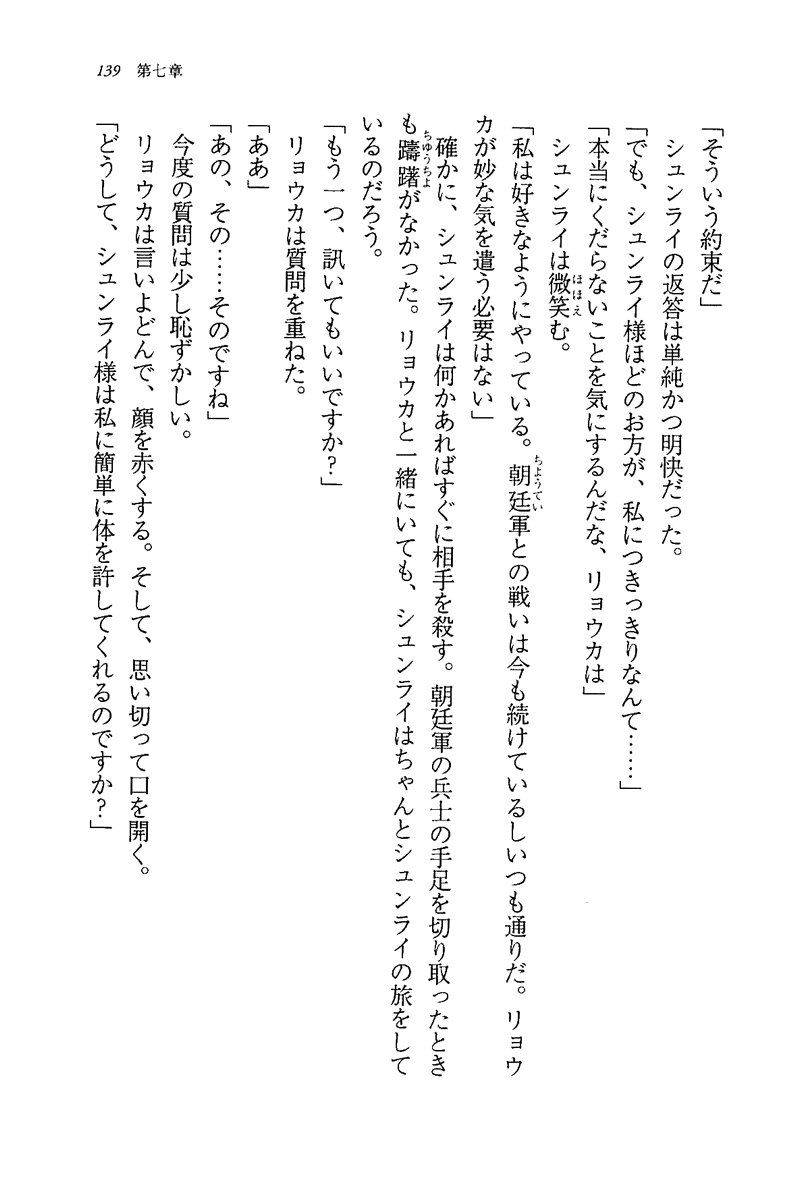 139 第七章
「そういう約束だ」
シュンライの返答は単純かつ明快だった。
「でも、シュンライ様ほどのお方が、私につきっきりなんて……」
「本当にくだらないことを気にするんだな、リョウカは」
シュンライは微笑む。
「私は好きなようにやっている。朝廷軍との戦いは今も続けているしいつも通りだ。リョウ
カが妙な気を遣う必要はない」
確かに、シュンライは何かあればすぐに相手を殺す。朝廷軍の兵士の手足を切り取ったとき
も躊躇がなかった。リョウカと一緒にいても、シュンライはちゃんとシュンライの旅をして
いるのだろう。
「もう一つ、訊いてもいいですか？」
リョウカは質問を重ねた。
「ああ」
「あの、その……そのですね」
今度の質問は少し恥ずかしい。
リョウカは言いよどんで、顔を赤くする。そして、思い切って口を開く。
「どうして、シュンライ様は私に簡単に体を許してくれるのですか？」